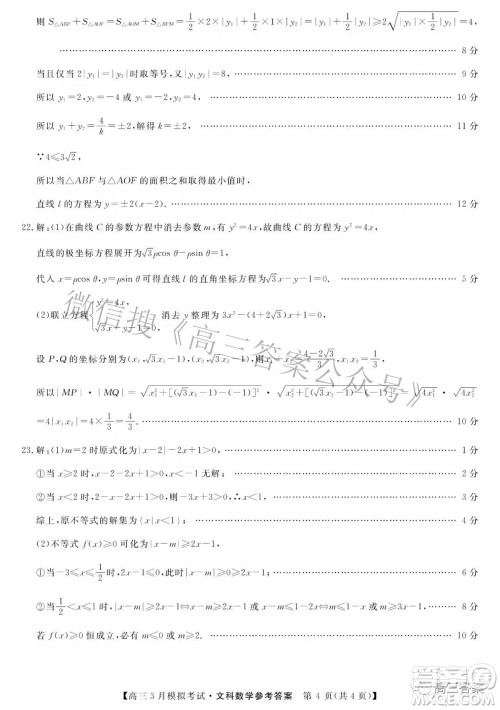 则 S△ABF+S△AOF=S△AOM+S△BOM=1/2×2×|y₁|+1/2×1×|y₂|=|y₁|+1/2|y₂|≥2√(|y₁|×1/2|y₂|)=4,
8 分
当且仅当 2|y₁|=|y₂|时取等号,又由|y₁||y₂|=8, 9 分
所以 y₁=2,y₂=-4 或 y₁=-2,y₂=4, 10 分
所以 y₁+y₂=4/k=±2,解得 k=±2, 11 分
∵4≤3√2,
所以当△ABF 与△AOF 的面积之和最小值时,
直线 l 的方程为 y=±2(x-2). 12 分
22.解:(1)在曲线 C 的参数方程中消去参数 m,有 y²=4x,故曲线 C 的方程为 y²=4x,
直线的极坐标方程展开为√3ρcos θ-ρsin θ=1,
代入 x=ρcos θ,y=ρsin θ,可得直线 l 的直角坐标方程为√3x-y-1=0. 5 分
(2)联立方程{y²=4x, 消去 y 整理为 3x²-(4+2√3)x+1=0,
设 P,Q 的坐标分别为(x₁,√3x₁-1),(x₂,√3x₂-1),
x₁x₂=1/3,
=4|x₁x₂|=4×1/3=4/3. 10 分
23.解:(1)m=2 时原式化为|x-2|-2x+1>0, 1 分
①当 x≥2 时,x-2-2x+1>0,x<-1 无解; 2 分
②当 x<2 时,原不等式化为 2-x-2x+1>0,则-3x+3>0,x<1. 3 分
综上,原不等式的解集为{x|x<1}. 4 分
(2)不等式 f(x)≥0 可化为|x-m|≥2x-1,
①当-3≤x≤1/2时,2x-1≤0,|x-m|≥2x-1 恒成立; 6 分
②当1/2<x≤1 时,|x-m|≥2x-1 8 分
若 f(x)≥0 恒成立, 10 分
【高三 3 月模拟考试·文科数学参考答案 第 4 页(共 4 页)】
微信搜《高三答案公众号》
高三答案